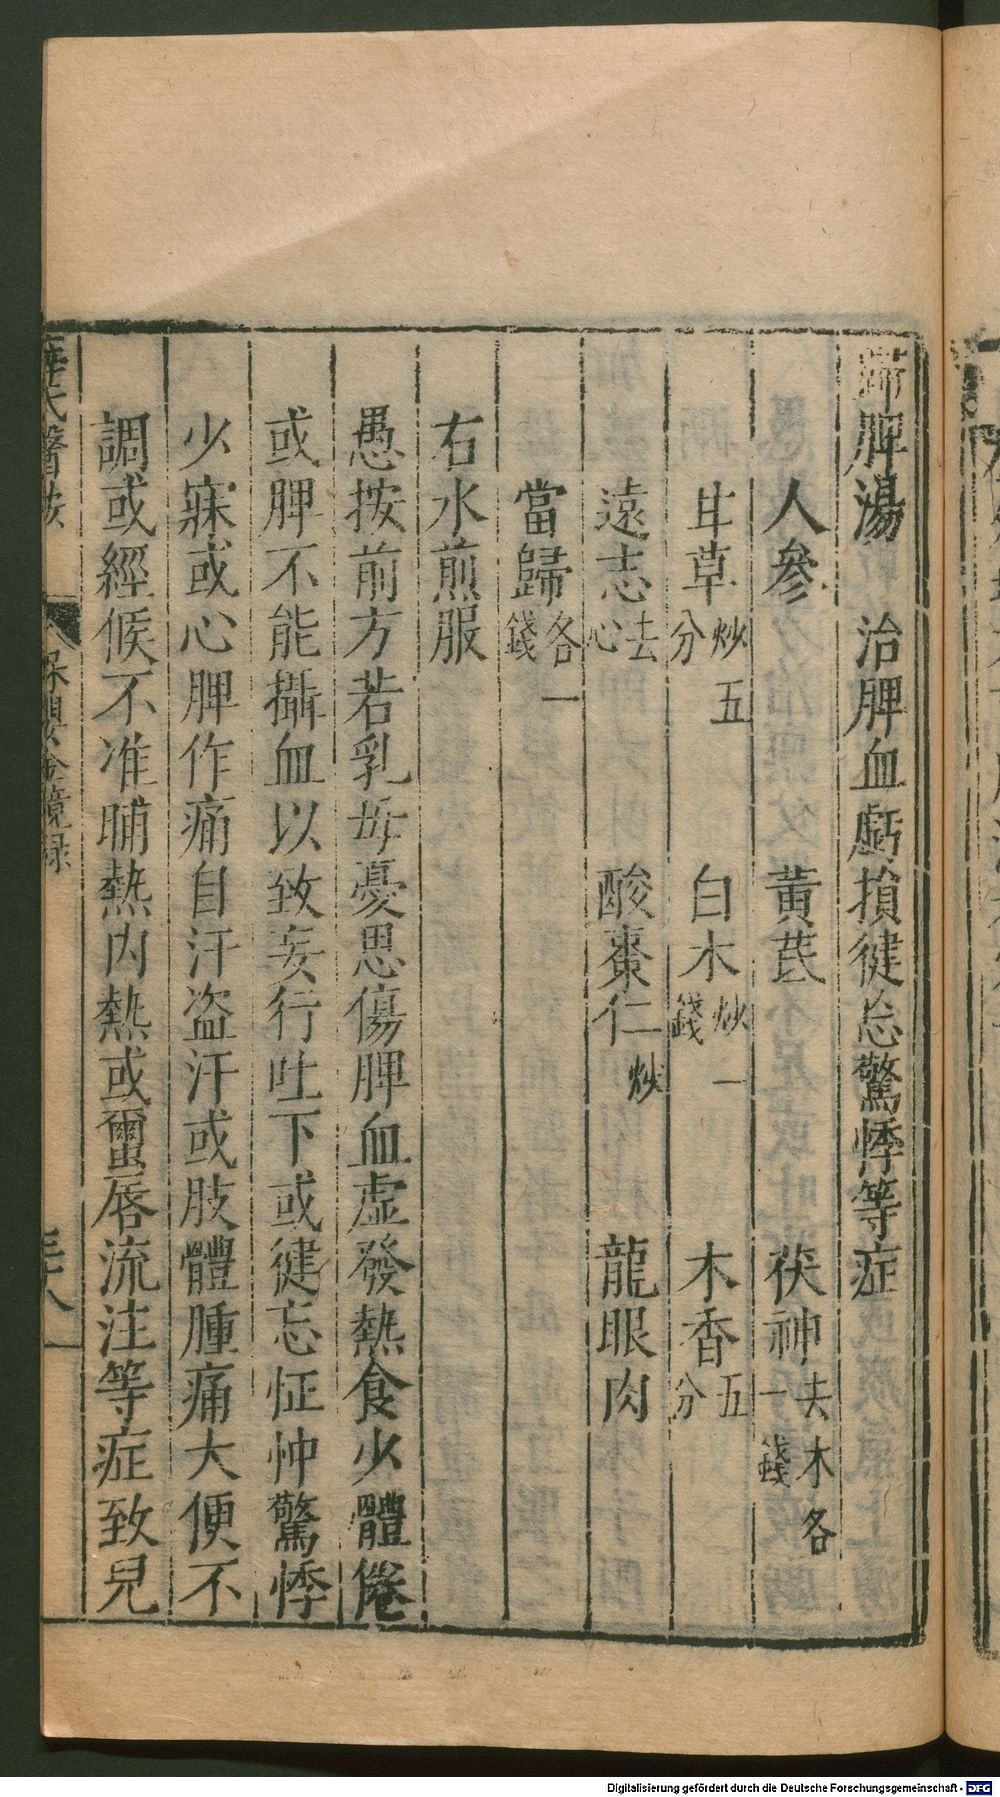 歸脾湯　治脾血虧損健忘驚悸等症
人參　黃芪　茯神去木各一錢
甘草炒五分　白木炒一錢　木香五分
遠志去心　酸棗仁炒　龍眼肉
當歸各一錢
右水煎服
愚按前方若乳母憂思傷脾血虛發熱食少體倦
或脾不能攝血以致妄行吐下或健忘怔忡驚悸
少寐或心脾作痛自汗盜汗或肢體腫痛大便不
調或經候不准晡熱內熱或蠒唇流注等症致兒
薛氏醫按　保嬰金鏡錄　三十八
Digitalisierung gefördert durch die Deutsche Forschungsgemeinschaft - DFG